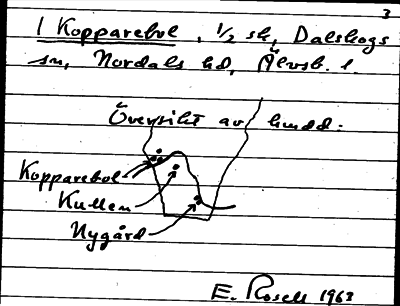 3
1 Kopparebol, 1/2 sk, Dalskogs
sn, Nordals hd, Älvsb. l.
Översikt av hundd.
Kopparebol
Kullen
Nygård
E. Rosell 1963